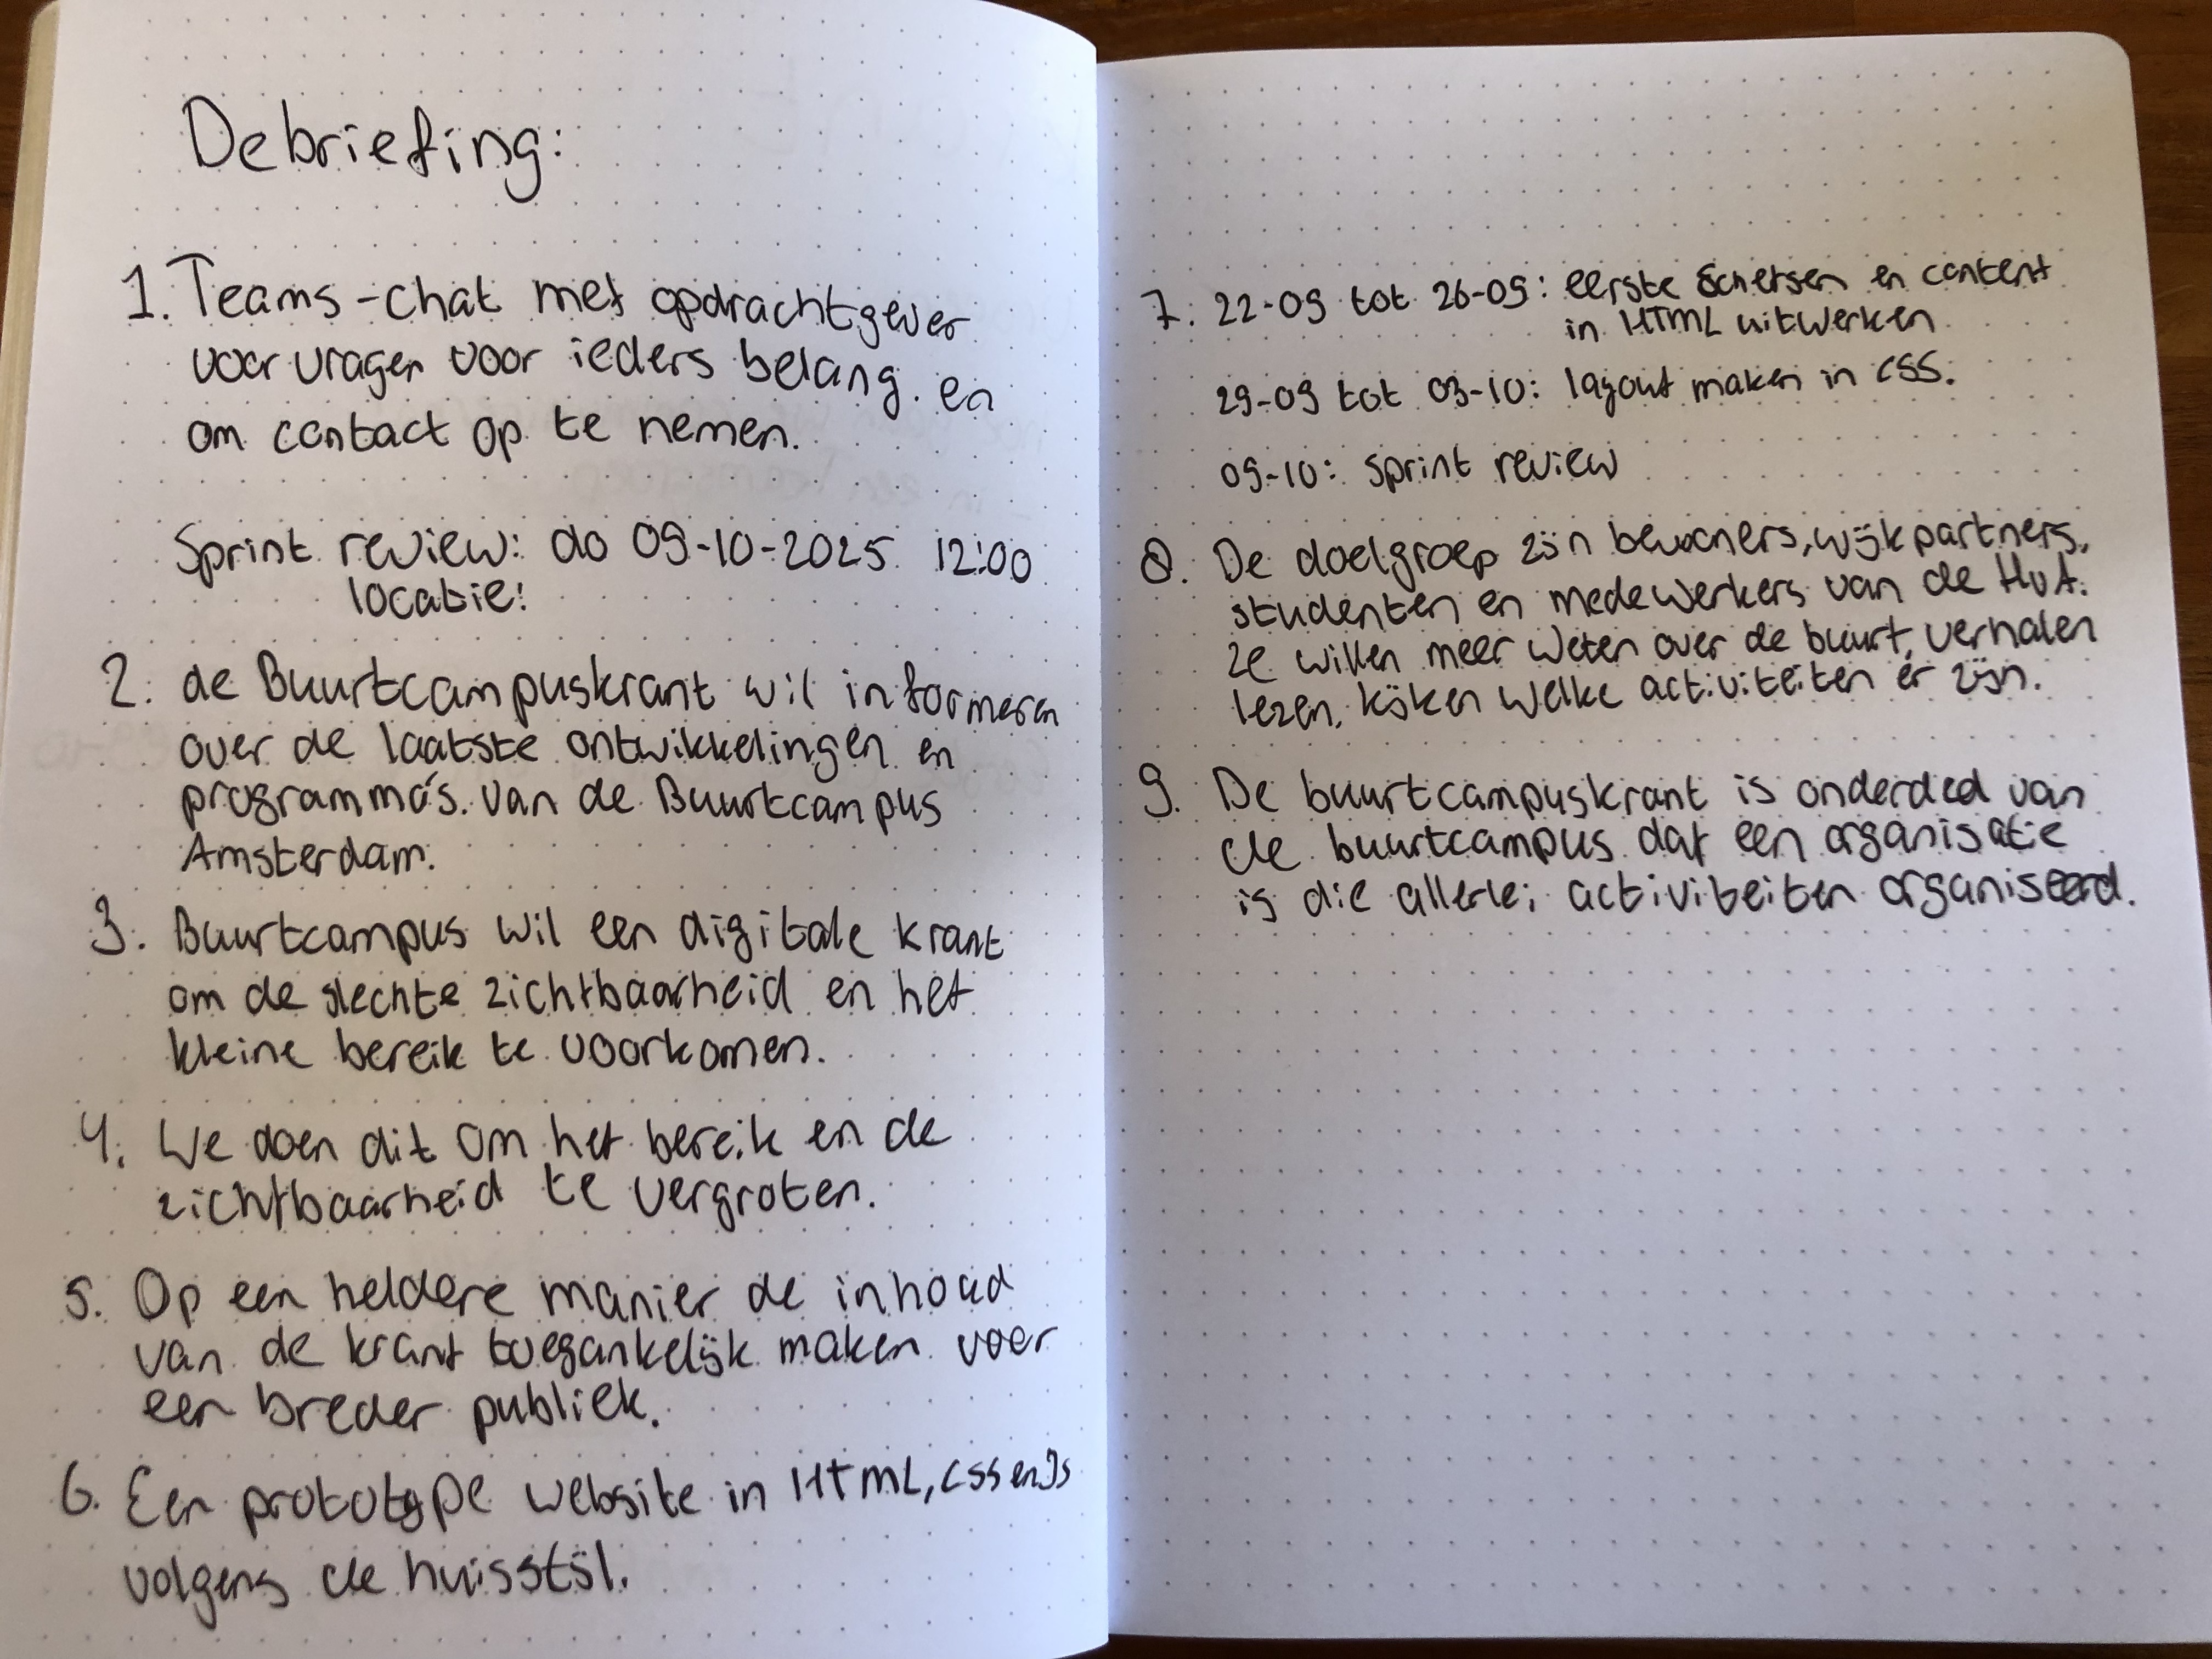 Debriefing:
1. Teams-chat met opdrachtgever
voor vragen voor ieders belang. en
om contact op te nemen.
Sprint review: do 09-10-2025 12:00
locatie:
2. de Buurtcampuskrant wil informeren
over de laatste ontwikkelingen en
programma's van de Buurtcampus
Amsterdam.
3. Buurtcampus wil een digitale krant
om de slechte zichtbaarheid en het
kleine bereik te voorkomen.
4. We doen dit om het bereik en de
zichtbaarheid te vergroten.
5. Op een heldere manier de inhoud
van de krant toegankelijk maken voor
een breder publiek.
6. Een prototype website in HTML, CSS en JS
volgens de huisstijl.
7. 22-09 tot 26-09: eerste schetsen en content
in HTML uitwerken
29-09 tot 03-10: layout maken in CSS.
09-10: sprint review
8. De doelgroep zijn bewoners, wijkpartners,
studenten en medewerkers van de HvA.
Ze willen meer weten over de buurt, verhalen
lezen, kijken welke activiteiten er zijn.
9. De buurtcampuskrant is onderdeel van
de buurtcampus dat een organisatie
is die allerlei activiteiten organiseerd.